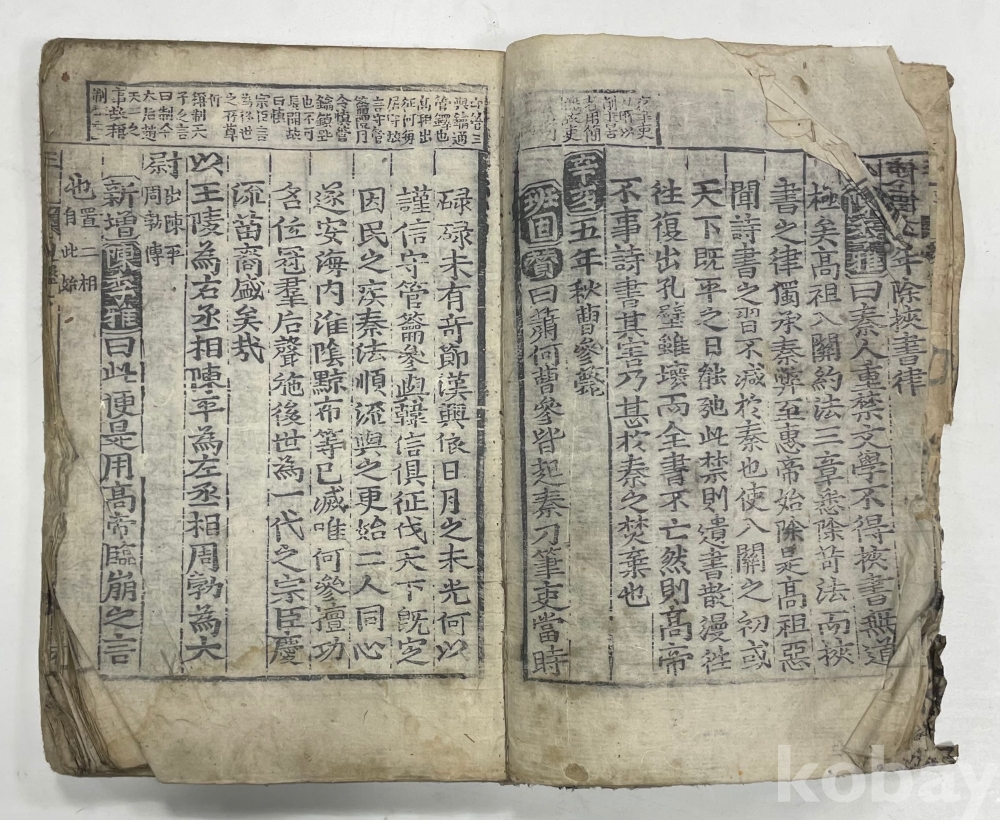 年除挾書律
曰秦人重禁文學不得挾書無道
極矣高祖入關約法三章悉除苛法而挾
書之律獨承秦弊至惠帝始除是高祖惡
聞詩書之習不减於秦也使入關之初或
天下既平之日能弛此禁則遺書散漫徃
徃復出孔壁雖壞而全書不亡然則高帝
不事詩書其害乃甚於秦之焚棄也
五年秋曹參薨
班固賛曰蕭何曹參皆起秦刀筆吏當時
與鑰通
高祖出
征何每
居守故
言守管
也不可
宗臣言
為後世
子之言
曰制令
碌碌未有奇節漢興依日月之末光何以
謹信守管籥參與韓信俱征伐天下旣定
因民之疾秦法順流與之更始二人同心
遂安海内淮陰黥布等已滅唯何參擅功
名位冠羣后聲施後世為一代之宗臣慶
流苗裔盛矣哉
以王陵為右丞相陳平為左丞相周勃為大
尉出陳平周勃傳
新增陳季雅曰此便是用高帝臨崩之言
也置二相自此始
kobay